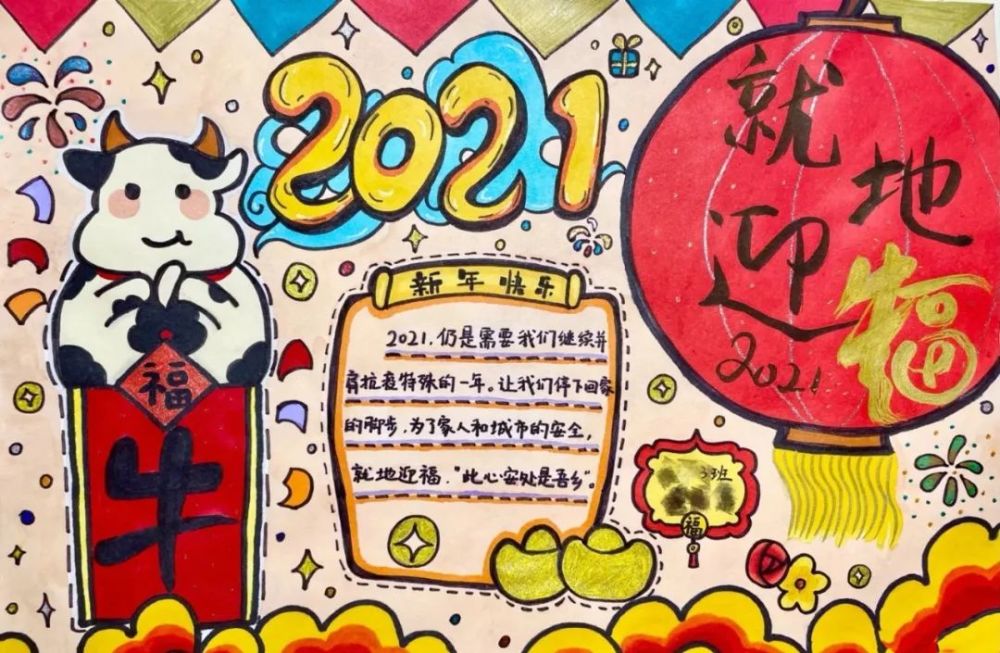 2021
就地
迎福
2021
新年快乐
2021,仍是需要我们继续并
肩抗疫特殊的一年。让我们停下回家
的脚步,为了家人和城市的安全,
就地迎福,"此心安处是吾乡"。
福
牛
3班
福